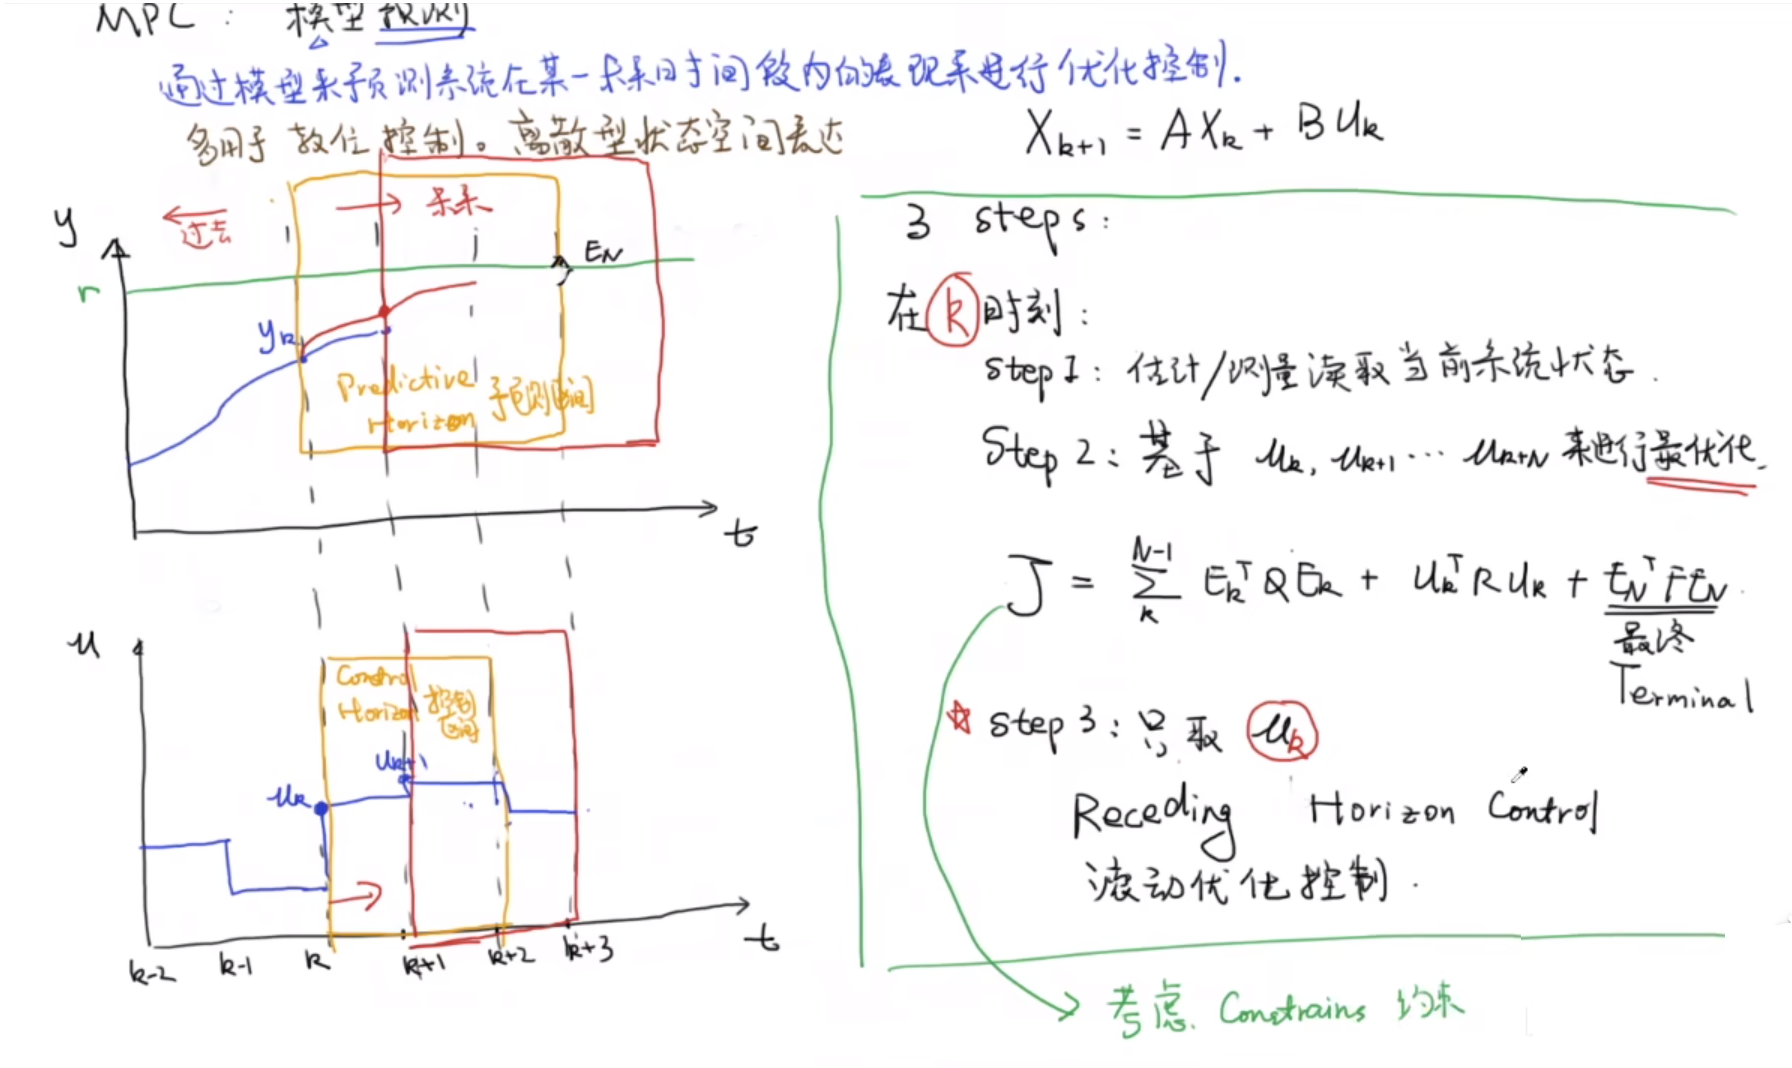 MPC： 模型预测
通过模型来预测系统在某一未来时间段内的表现来进行优化控制.
多用于 数位控制。离散型状态空间表达
X_{k+1} = A X_k + B u_k
y
过去
未来
r
E_N
y_k
Predictive
Horizon 预测区间
t
u
Control
Horizon 控制
区间
u_k
u_{k+1}
k-2 k-1 k k+1 k+2 k+3
t
3 steps:
在 k 时刻:
step 1: 估计/测量读取当前系统状态.
Step 2: 基于 u_k, u_{k+1} ... u_{k+N} 来进行最优化.
J = \sum_k^{N-1} E_k^T Q E_k + u_k^T R u_k + E_N^T F E_N
最终
Terminal
☆ step 3: 只取 u_k
Receding Horizon Control
滚动优化控制.
考虑. Constrains 约束